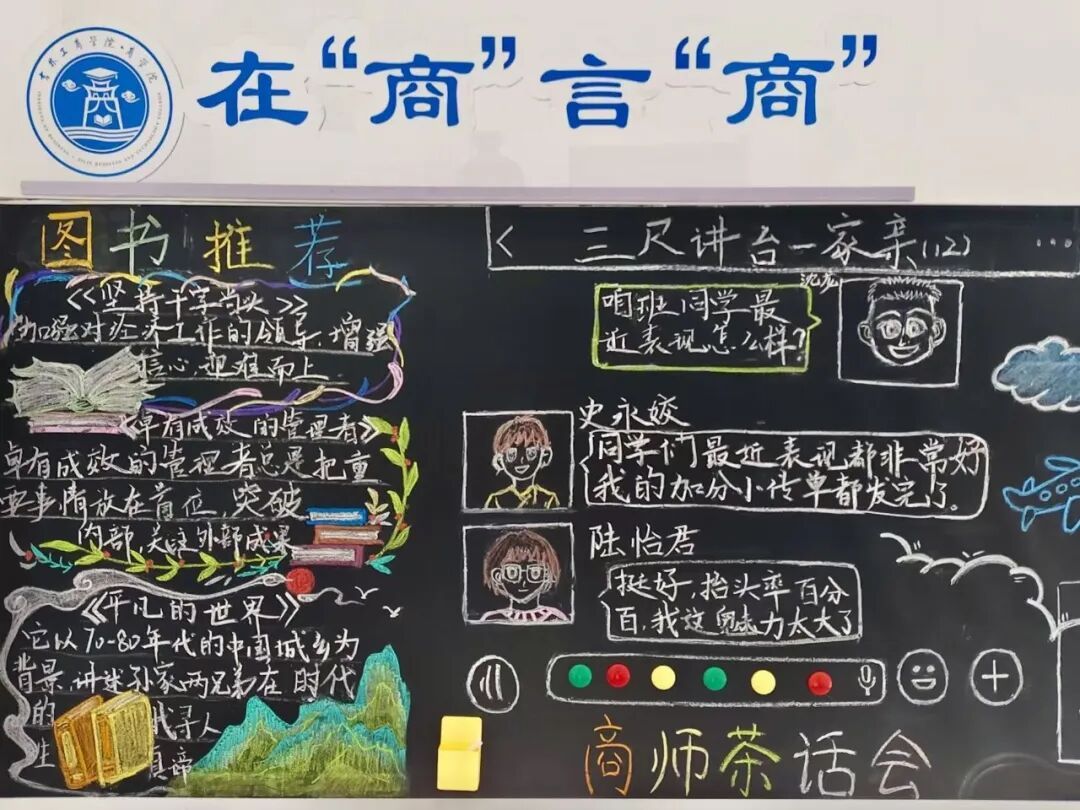 在“商”言“商”
吉林工商学院·商学院
图书推荐
《坚持干字当头》
加强对经济工作的领导，增强
信心，迎难而上
《卓有成效的管理者》
卓有成效的管理者总是把重
要事情放在首位，突破
内部，关注外部成果
《平凡的世界》
它以70-80年代的中国城乡为
背景，讲述孙家两兄弟在时代
的
找寻人
生
真谛
< 三尺讲台一家亲(12) ...
沈龙
咱班同学最
近表现怎么样？
史永姣
同学们最近表现都非常好
我的加分小传单都发完了。
陆怡君
挺好，抬头率百分
百，我这魅力太大了
商师茶话会